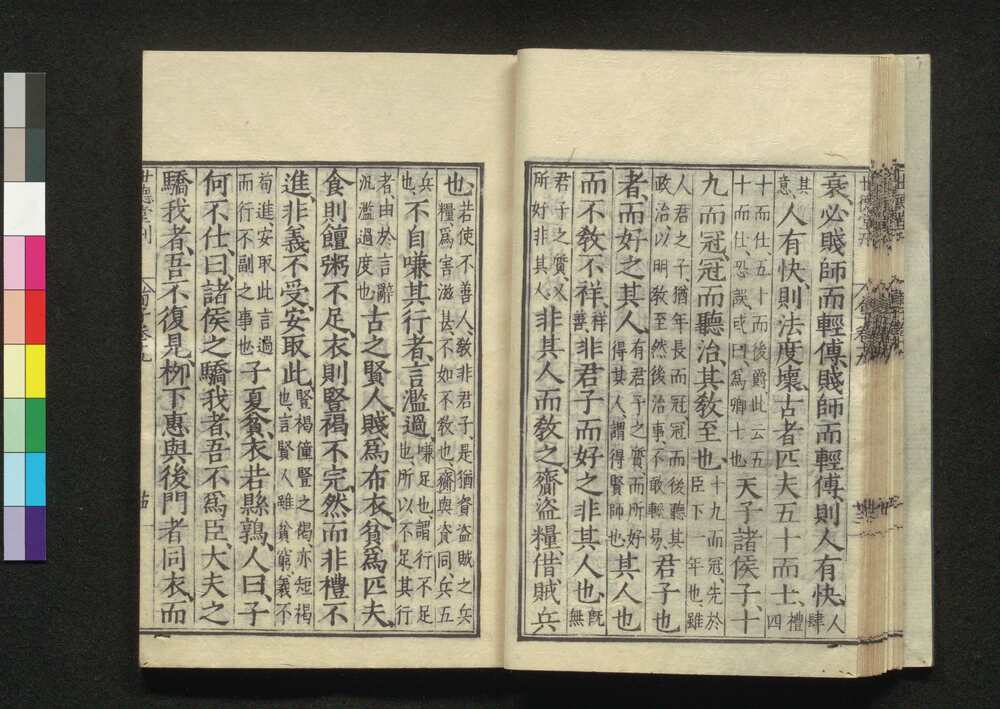 衰必賤師而輕傅、賤師而輕傅、則人有快、人肆
其意人有快、則法度壞、古者匹夫五十而士、禮四
十而仕、五十而後爵此云五十而仕、恐誤、或曰爲卿士也、天子諸侯子、十
九而冠、冠而聽治、其敎至也、十九而冠、先於臣下一年也、雖
人君之子、猶年長而冠冠而後聽其政治、以明敎至然後治事、不敢輕易、君子也
者、而好之其人、有君子之質、而所好得其人、謂得賢師也、其人也
而不敎、不祥、祥善、非君子而好之、非其人也、旣無
君子之質、又所好非其人、非其人而敎之、齎盜糧、借賊兵
也、若使不善人、敎非君子、是猶資盜賊之兵糧、爲害滋甚、不如不敎也、齎與資同、兵五
兵也、不自嗛其行者、言濫過、嗛足也、謂行不足也、所以不足其行
者、由於言辭汎濫過度也古之賢人、賤爲布衣、貧爲匹夫、
食則饘粥不足、衣則豎褐不完、然而非禮不
進、非義不受、安取此、豎褐、僮豎之褐、亦短褐也、言賢人雖貧窮、義不
苟進、安取此言過而行不副之事也、子夏貧、衣若縣鶉、人曰、子
何不仕、曰、諸侯之驕我者、吾不爲臣、大夫之
驕我者、吾不復見、柳下惠與後門者同衣、而